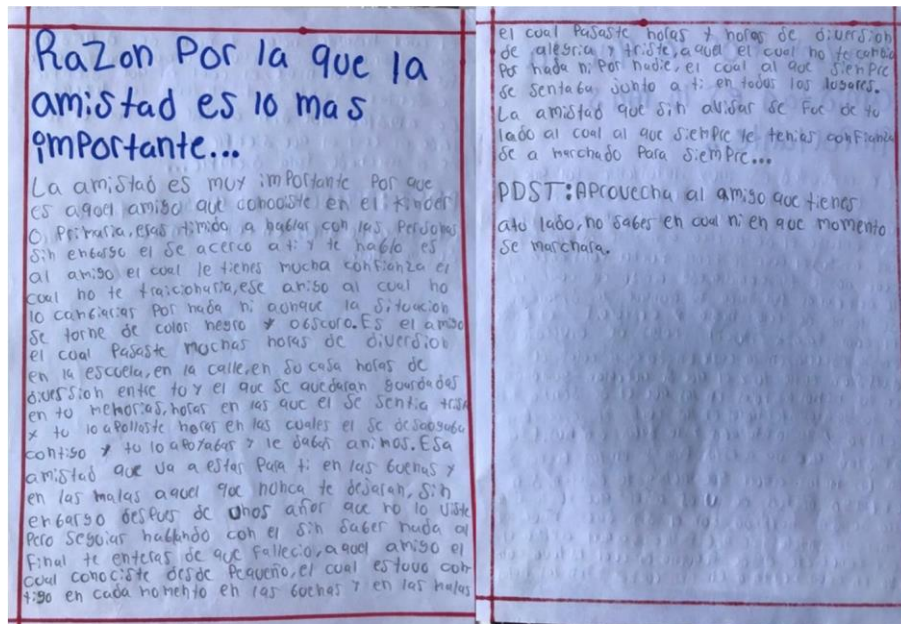 Razon Por la que la
amistad es lo mas
importante...
La amistad es muy importante Por que
es aquel amigo que conociste en el Kinder
O Primaria, eras timido a hablar con las Personas
Sin enbargo el se acerco a ti y te hablo es
al amigo el cual le tienes mucha confianza el
cual no te traicionaria, ese amigo al cual no
lo canbiarias Por nada ni aunque la situacion
se torne de color negro y obscuro. Es el amigo
el cual Pasaste muchas horas de diversion
en la escuela, en la calle, en su casa horas de
diversion entre tu y el que se quedaran guardadas
en tu memorias, horas en las que el se sentia triste
y tu lo apollaste horas en las cuales el se desaogaba
contigo y tu lo apoyabas y le dabas animos. Esa
amistad que va a estar Para ti en las buenas y
en las malas aquel que nunca te dejaran, sin
enbargo despues de unos años que no lo viste
Pero seguias hablando con el sin saber nada al
final te enteras de que fallecio, aquel amigo el
cual conociste desde Pequeño, el cual estuvo con
tigo en cada momento en las buenas y en las malas
el cual Pasaste horas y horas de diversion
de alegria y triste, aquel el cual no te canbia
Por nada ni Por nadie, el cual al que sienpre
se sentaba junto a ti en todos los lugares.
La amistad que sin avisar se fue de tu
lado al cual al que siempre le tenias confianza
se a marchado Para siempre...
PDST: Aprovecha al amigo que tienes
atu lado, no sabes en cual ni en que momento
se marchara.